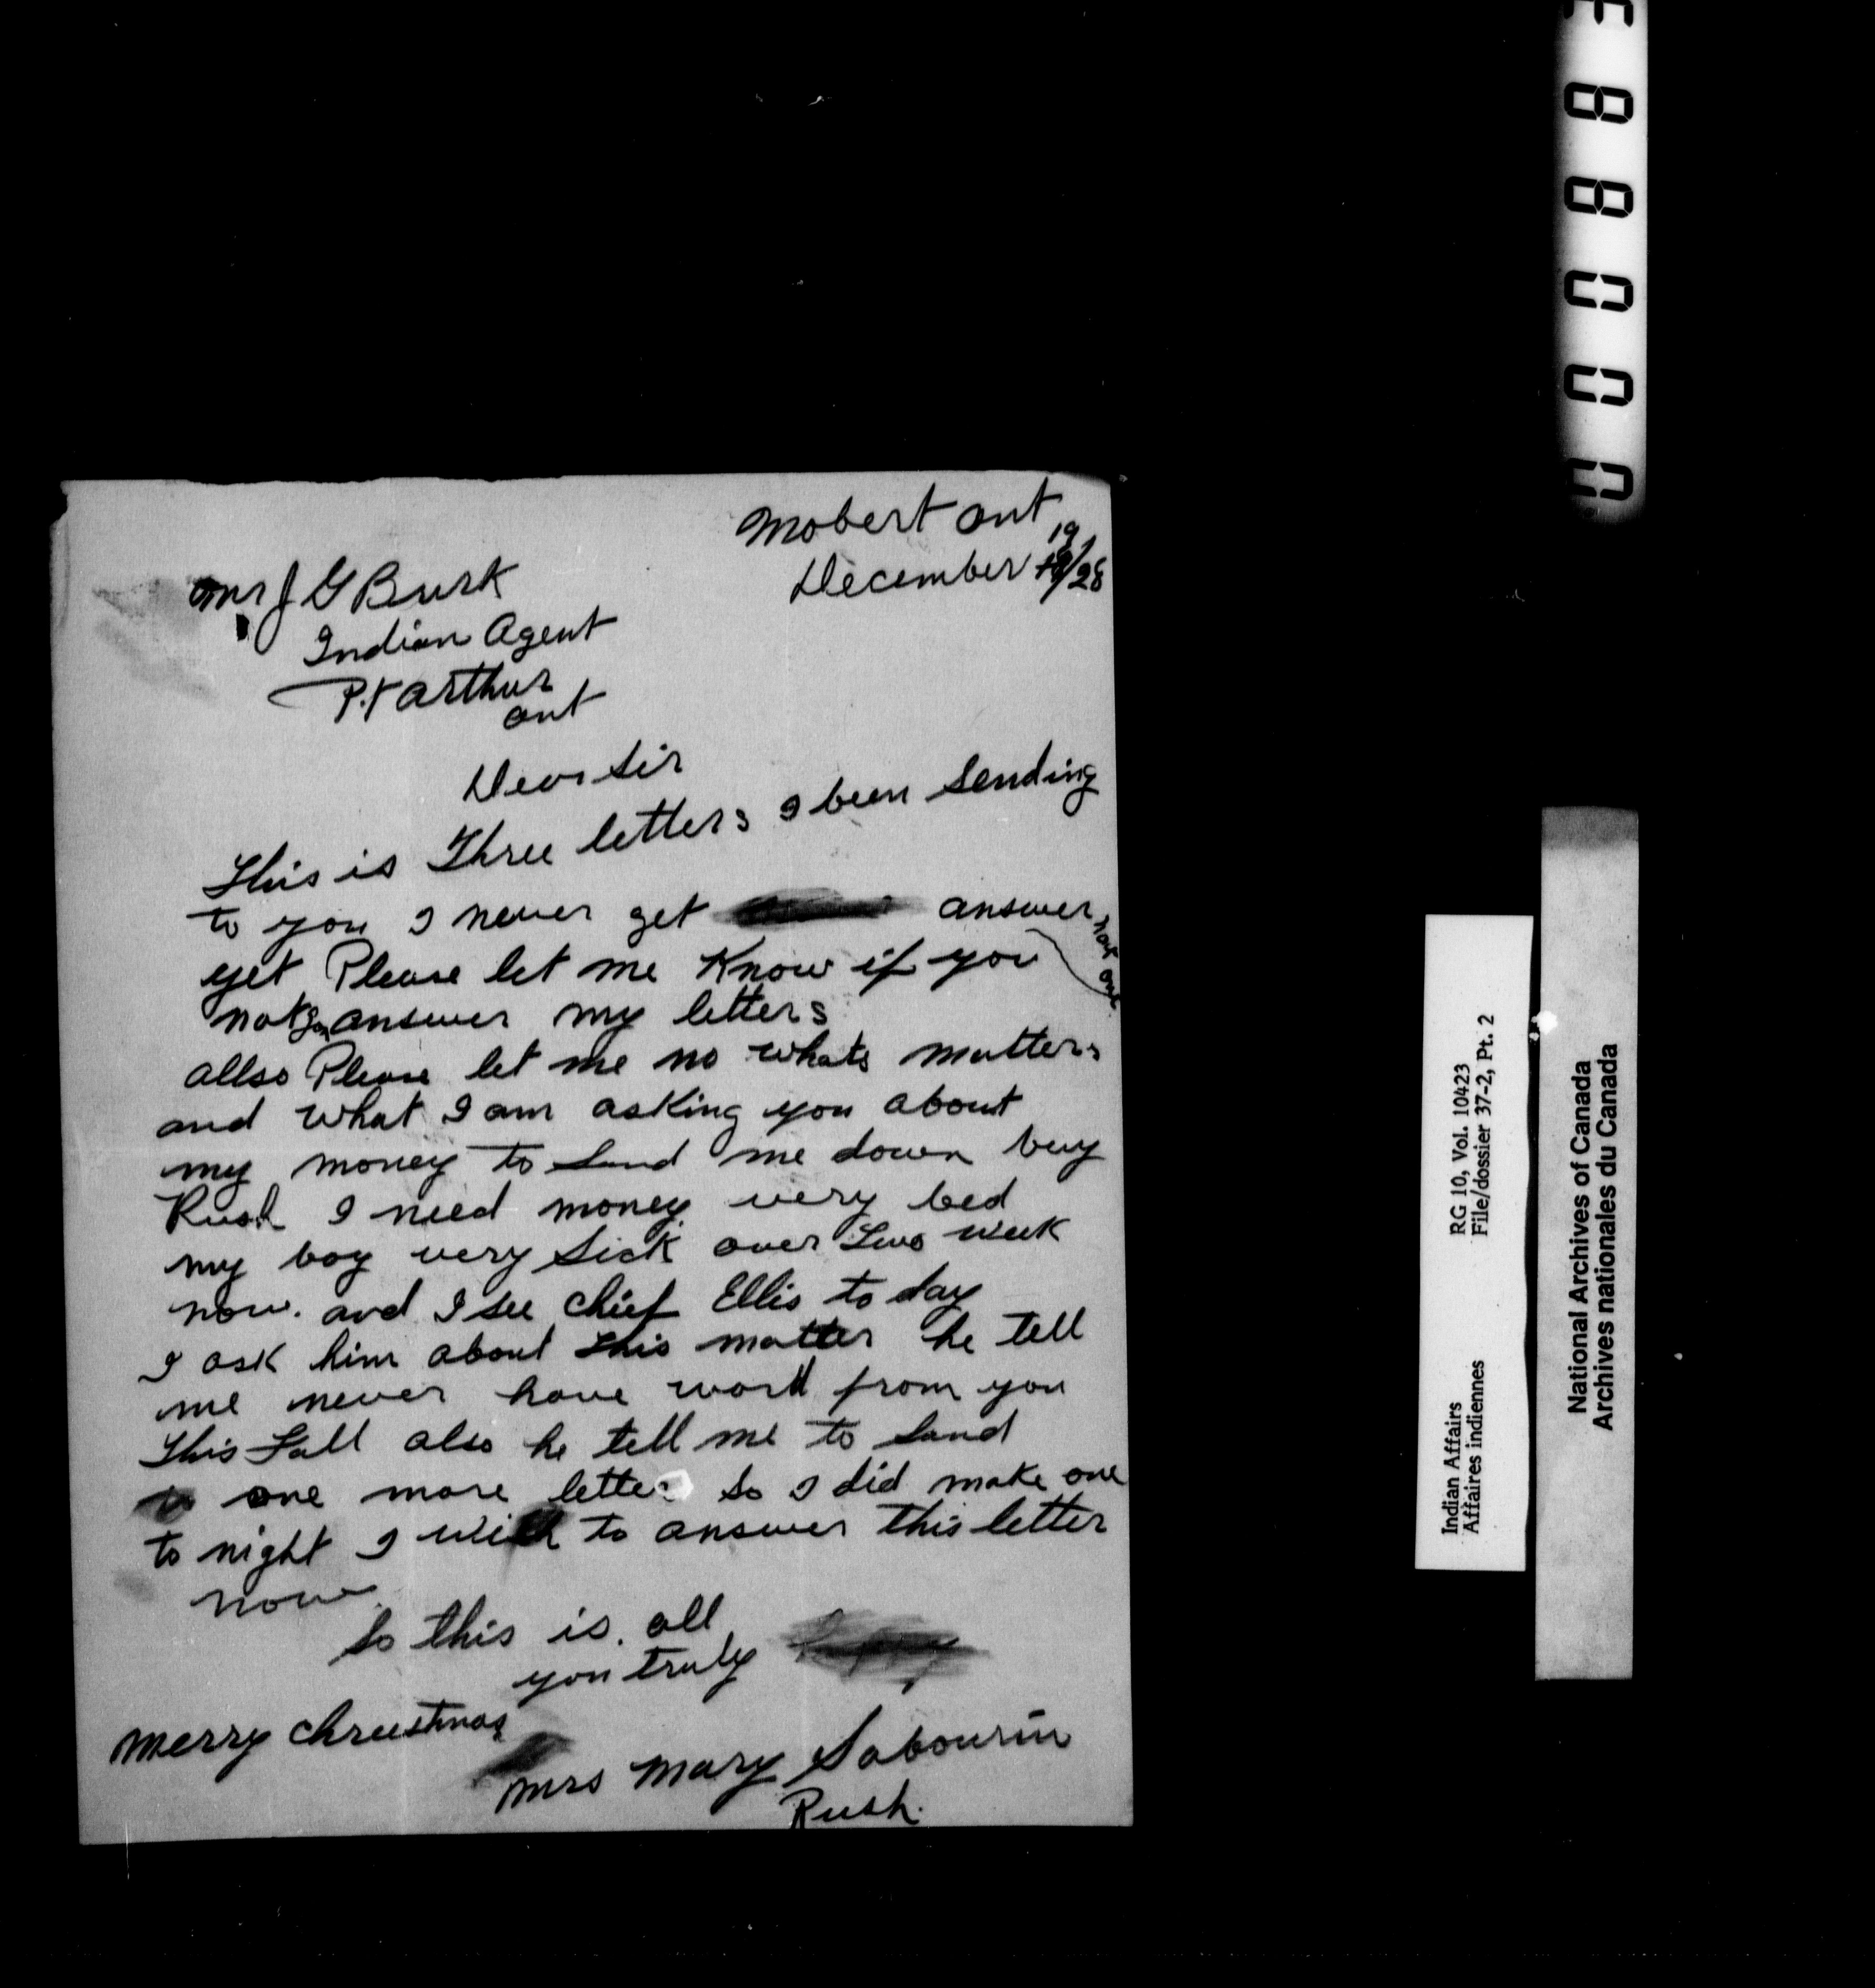 Mobert Ont
19
December 18/28
Mr J G Burk
Indian Agent
P.t Arthur
Ont
Dear Sir
This is Three letters I been Sending
to you I never get answer, not one
yet Please let me Know if you
not answer my letters
allso Please let me no whats matters
and what I am asking you about
my money to Send me down buy
Rush I need money very bed
my boy very Sick over Two week
now. and I see Chief Ellis to day
I ask him about this matter he tell
me never have word from you
This Fall also he tell me to Sand
to one more letter So I did make one
to night I wish to answer this letter
now.
So this is. all
you truly
Merry Chreestmas
Mrs Mary Sabourin
Rush.
0 0 0 8 8
Indian Affairs RG 10, Vol. 10423
Affaires indiennes File/dossier 37-2, Pt. 2
National Archives of Canada
Archives nationales du Canada